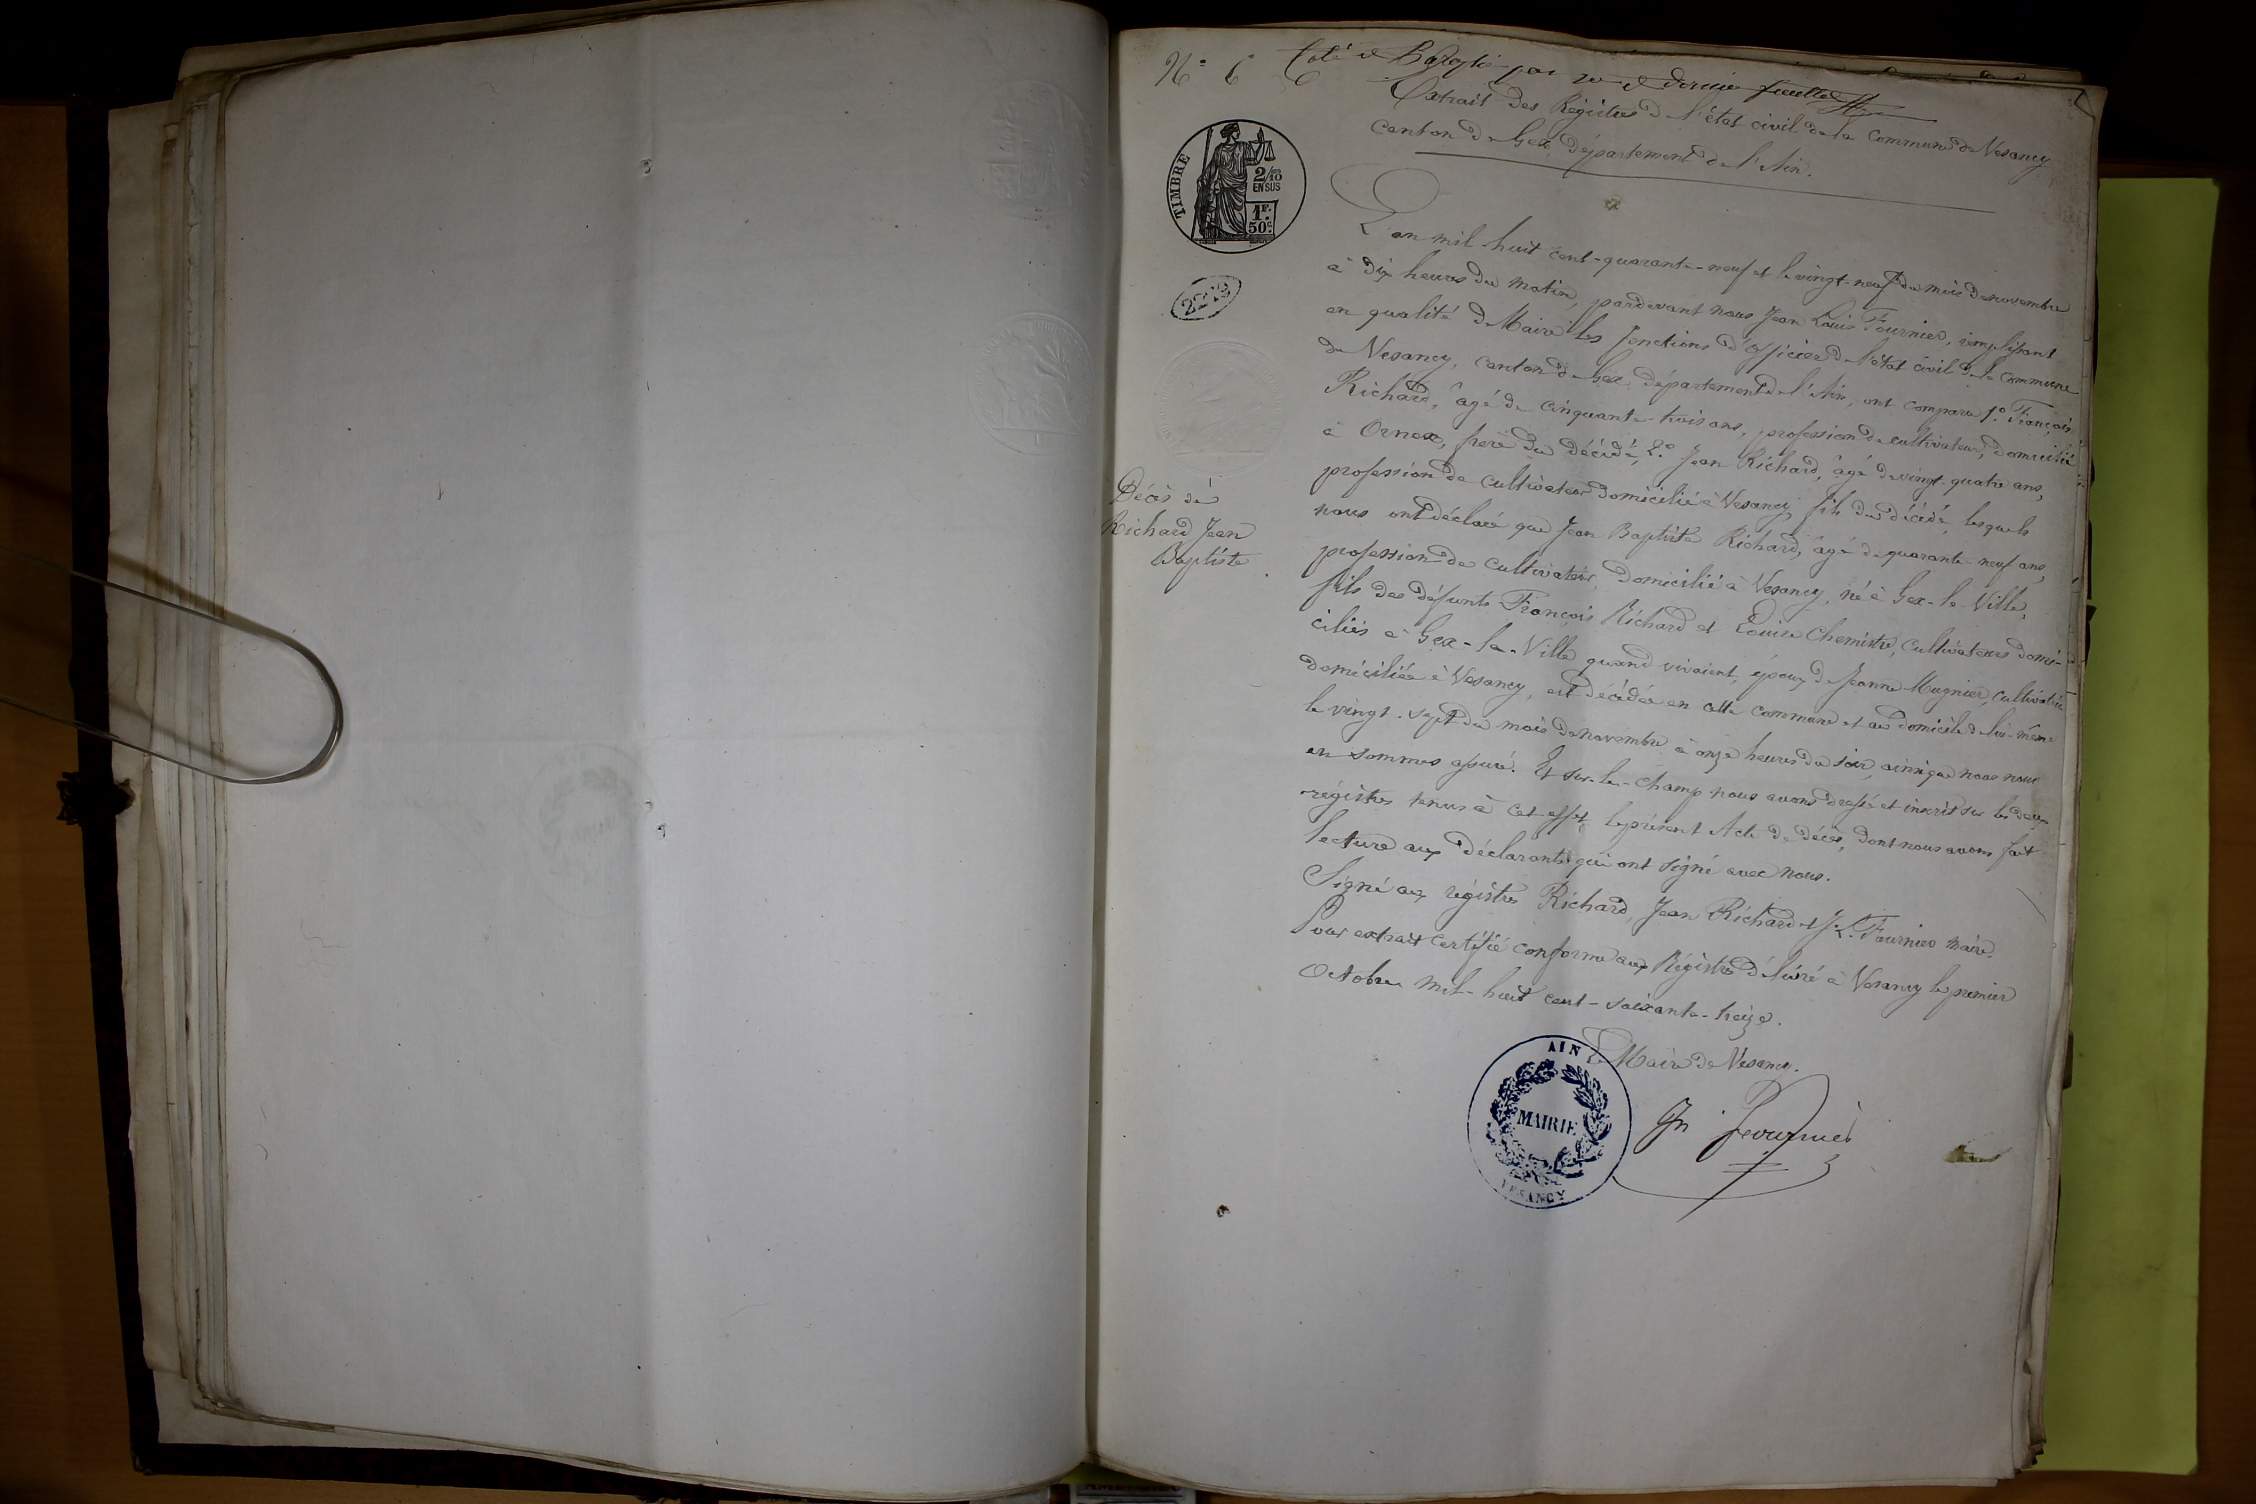 N° 6
Coté et Paraphé par et dernier feuillet
Extrait des Régistres de l'état civil de la Commune de Vesancy
Canton de Gex, Département de l'Ain.
TIMBRE
2/10
EN SUS
1F.
50c.
L'an mil huit cent-quarante-neuf et le vingt-neuf du mois de novembre
à dix heures du matin, pardevant nous Jean Louis Fournier, remplissant
en qualité de Maire les fonctions d'officier de l'état civil de la commune
de Vesancy, canton de Gex, département de l'Ain, ont comparu 1°. François
Richard, âgé de cinquante-trois ans, profession de cultivateur, domicilié
à Ornex, frère du décédé, 2°. Jean Richard, âgé de vingt-quatre ans,
profession de cultivateur domicilié à Vesancy, fils du décédé, lesquels
nous ont déclaré que Jean Baptiste Richard, âgé de quarante-neuf ans,
profession de cultivateur, domicilié à Vesancy, né à Gex-la-Ville,
fils des défunts François Richard et Louise Chemistre, cultivateurs domi-
ciliés à Gex-la-Ville quand vivaient, époux de Jeanne Mugnier, cultivatrice
domiciliée à Vesancy, est décédé en cette commune et au domicile de lui-même
le vingt-sept du mois de novembre à onze heures du soir, ainsi que nous nous
en sommes assuré. Et sur-le-champ nous avons dressé et inscrit sur les deux
régistres tenus à cet effet, le présent Acte de décès, dont nous avons fait
lecture aux déclarants qui ont signé avec nous.
Signé aux régistres Richard, Jean Richard et J. L. Fournier maire.
Pour extrait certifié conforme aux Régistres délivré à Vesancy le premier
Octobre mil-huit cent-soixante-treize.
Le Maire de Vesancy.
Fournier
Décès de
Richard Jean
Baptiste
AIN
MAIRIE
VESANCY